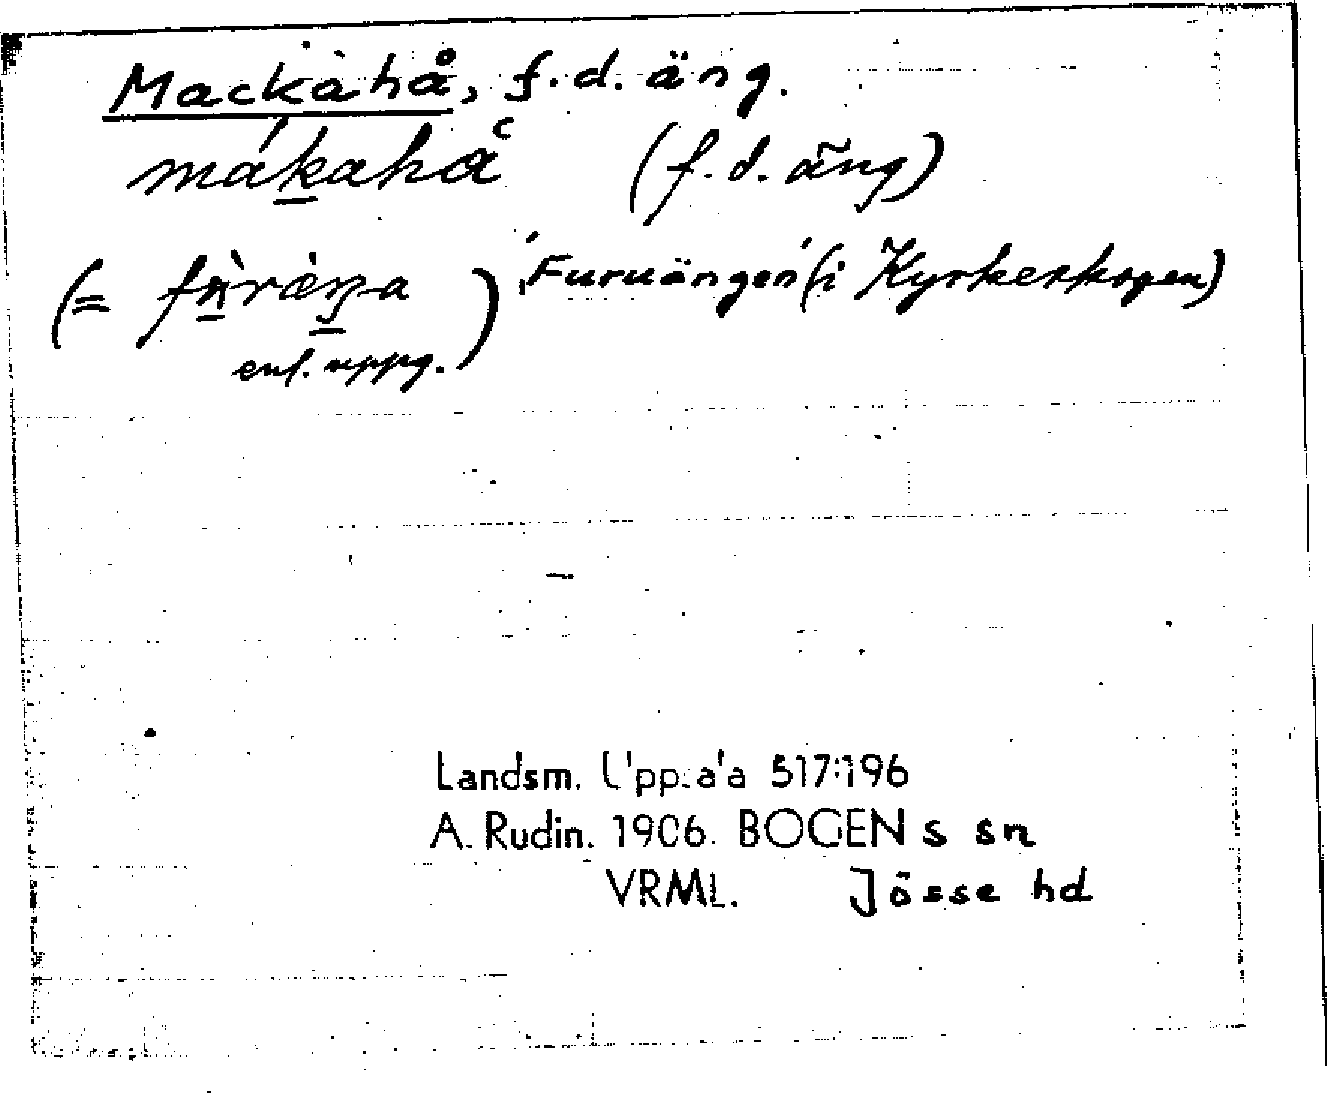 Mackahå, f.d. äng.
mákahå (f.d. äng)
(= fùràŋa) 'Furuängen' (i Kyrkeskogen)
enl. uppg.
Landsm. Upps. a'a 517:196
A. Rudin. 1906. BOGEN s sn
VRML. Jösse hd